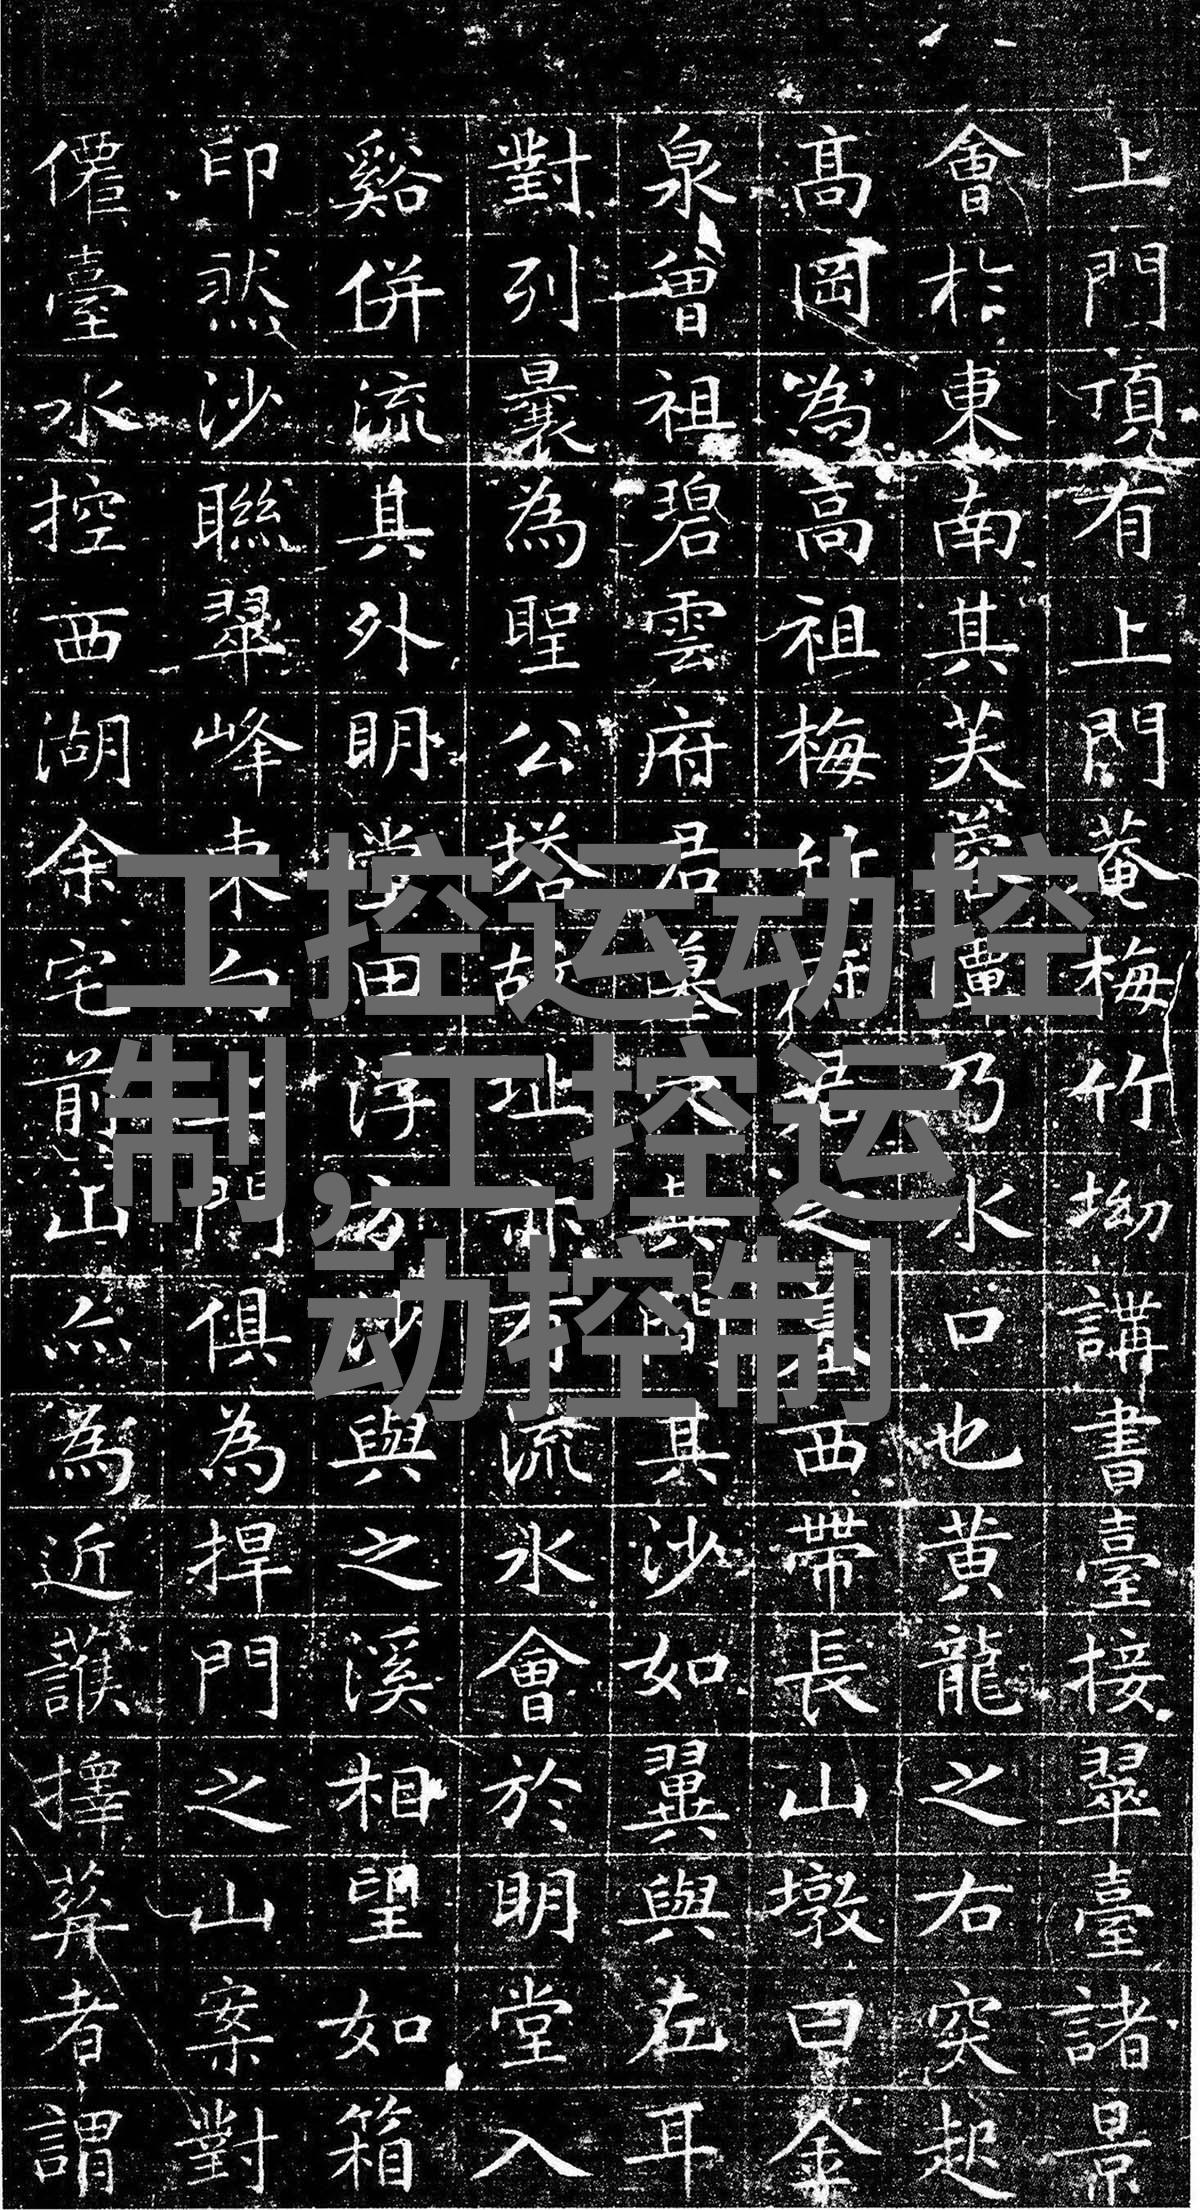 上門頂有上門菴梅竹坳講書臺接翠臺諸景
會於東南其芙蓉乃水口也黃龍之右突起
高岡為高祖梅竹府君之墓西帶長山墩曰金
泉曾祖碧雲府君墓其間其沙如翼與左耳
對列曩為聖公塔故址亦有流水會於明堂入
谿併流其外明堂田浮沙與之溪相望如箱
印然沙聯翠峰東向上門俱為捍門之山案對
僊臺水控西湖余宅前山為近護擇葬者謂
工控运动控
制,工控运
动控制